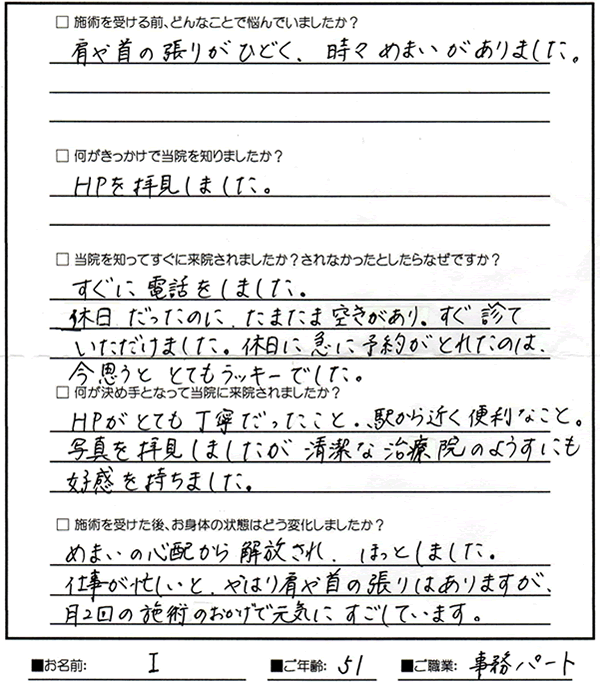 □ 施術を受ける前、どんなことで悩んでいましたか?
肩や首の張りがひどく、時々めまいがありました。
□ 何がきっかけで当院を知りましたか?
HPを拝見しました。
□ 当院を知ってすぐに来院されましたか?されなかったとしたらなぜですか?
すぐに電話をしました。
休日だったのに、たまたま空きがあり。すぐ診て
いただけました。休日に急に予約がとれたのは、
今思うととてもラッキーでした。
□ 何が決め手となって当院に来院されましたか?
HPがとても丁寧だったこと。駅から近く便利なこと。
写真を拝見しましたが清潔な治療院のようすにも
好感を持ちました。
□ 施術を受けた後、お身体の状態はどう変化しましたか?
めまいの心配から解放され、ほっとしました。
仕事が忙しいと、やはり肩や首の張りはありますが、
月2回の施術のおかげで元気にすごしています。
■お名前: I ■ご年齢: 51 ■ご職業: 事務パート